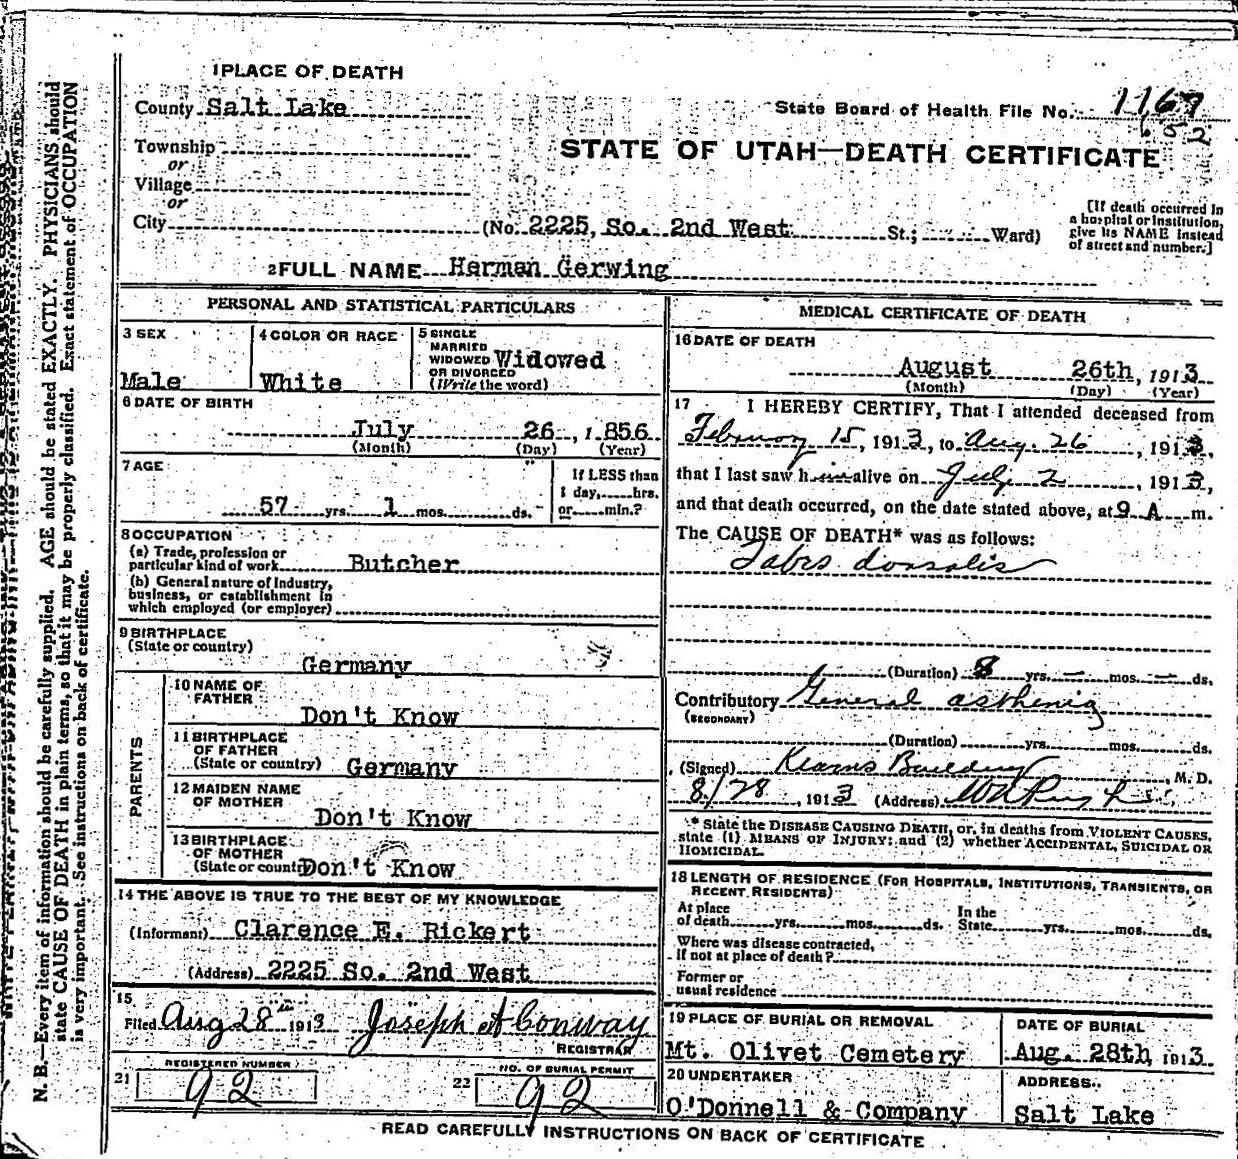 1 PLACE OF DEATH
County Salt Lake
State Board of Health File No. 1167
652
Township
or
Village
or
City
STATE OF UTAH—DEATH CERTIFICATE
(No. 2225, So. 2nd West St.; Ward)
[If death occurred in
a hospital or institution,
give its NAME instead
of street and number.]
2 FULL NAME Herman Gerwing
PERSONAL AND STATISTICAL PARTICULARS
3 SEX
Male
4 COLOR OR RACE
White
5 SINGLE
MARRIED
WIDOWED
OR DIVORCED
(Write the word)
Widowed
6 DATE OF BIRTH
July 26, 1856
(Month) (Day) (Year)
7 AGE
57 yrs. 1 mos. ds.
If LESS than
1 day, hrs.
or min.?
8 OCCUPATION
(a) Trade, profession or
particular kind of work Butcher
(b) General nature of Industry,
business, or establishment in
which employed (or employer)
9 BIRTHPLACE
(State or country)
Germany
PARENTS
10 NAME OF
FATHER
Don't Know
11 BIRTHPLACE
OF FATHER
(State or country) Germany
12 MAIDEN NAME
OF MOTHER
Don't Know
13 BIRTHPLACE
OF MOTHER
(State or country) Don't Know
14 THE ABOVE IS TRUE TO THE BEST OF MY KNOWLEDGE
(Informant) Clarence E. Rickert
(Address) 2225 So. 2nd West
15
Filed Aug 28th 1913 Joseph A Conway
REGISTRAR
21 REGISTERED NUMBER
92
22 NO. OF BURIAL PERMIT
92
MEDICAL CERTIFICATE OF DEATH
16 DATE OF DEATH
August 26th, 1913
(Month) (Day) (Year)
17 I HEREBY CERTIFY, That I attended deceased from
February 15, 1913, to Aug. 26, 1913,
that I last saw him alive on July 2, 1913,
and that death occurred, on the date stated above, at 9 A m.
The CAUSE OF DEATH* was as follows:
Tabes dorsalis
(Duration) 8 yrs. — mos. — ds.
Contributory General asthenia
(SECONDARY)
(Duration) yrs. mos. ds.
(Signed) Kearns Building, M. D.
8/28, 1913 (Address)
* State the DISEASE CAUSING DEATH, or, in deaths from VIOLENT CAUSES,
state (1) MEANS OF INJURY; and (2) whether ACCIDENTAL, SUICIDAL OR
HOMICIDAL.
18 LENGTH OF RESIDENCE (FOR HOSPITALS, INSTITUTIONS, TRANSIENTS, OR
RECENT RESIDENTS)
At place
of death yrs. mos. ds.
In the
State yrs. mos. ds.
Where was disease contracted,
If not at place of death?
Former or
usual residence
19 PLACE OF BURIAL OR REMOVAL
Mt. Olivet Cemetery
DATE OF BURIAL
Aug. 28th, 1913
20 UNDERTAKER
O'Donnell & Company
ADDRESS
Salt Lake
READ CAREFULLY INSTRUCTIONS ON BACK OF CERTIFICATE
N. B.—Every item of information should be carefully supplied. AGE should be stated EXACTLY. PHYSICIANS should
state CAUSE OF DEATH in plain terms, so that it may be properly classified. Exact statement of OCCUPATION
is very important. See instructions on back of certificate.